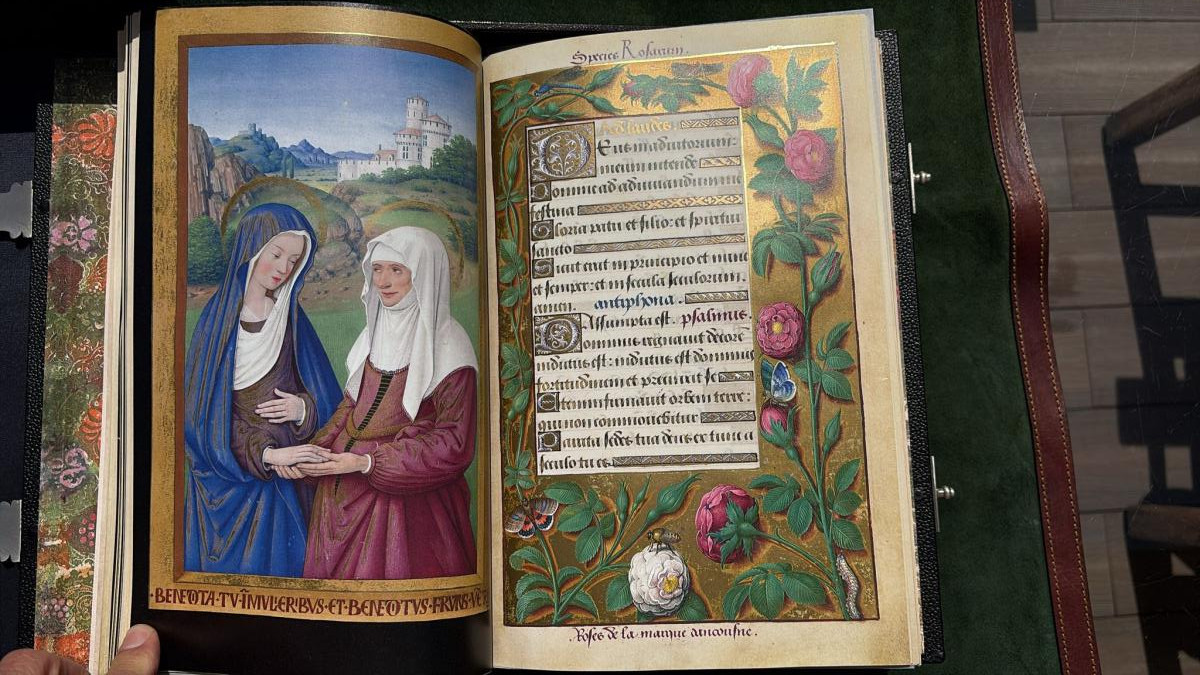 ·BENEDTA·TV·ĪMVLIERIBVS·ET·BENEDTVS·FRVTVS·VE
Species Rosarum.
Ad laudes:
Deus in adiutorium:
meum intende
Domine ad adiuuandum me
festina
Gloria patri et filio: et spiritui
sancto
Sicut erat in principio et nunc
et semper: et in secula seculorum.
amen. antiphona.
Assumpta est. psalmus.
Dominus regnauit decorē
indutus est: indutus est dominus
fortitudinem et precinxit se
Etenim firmauit orbem terre:
qui non commouebitur
Parata sedes tua deus ex tunc a
seculo tu es
Roses de la marque danconne.